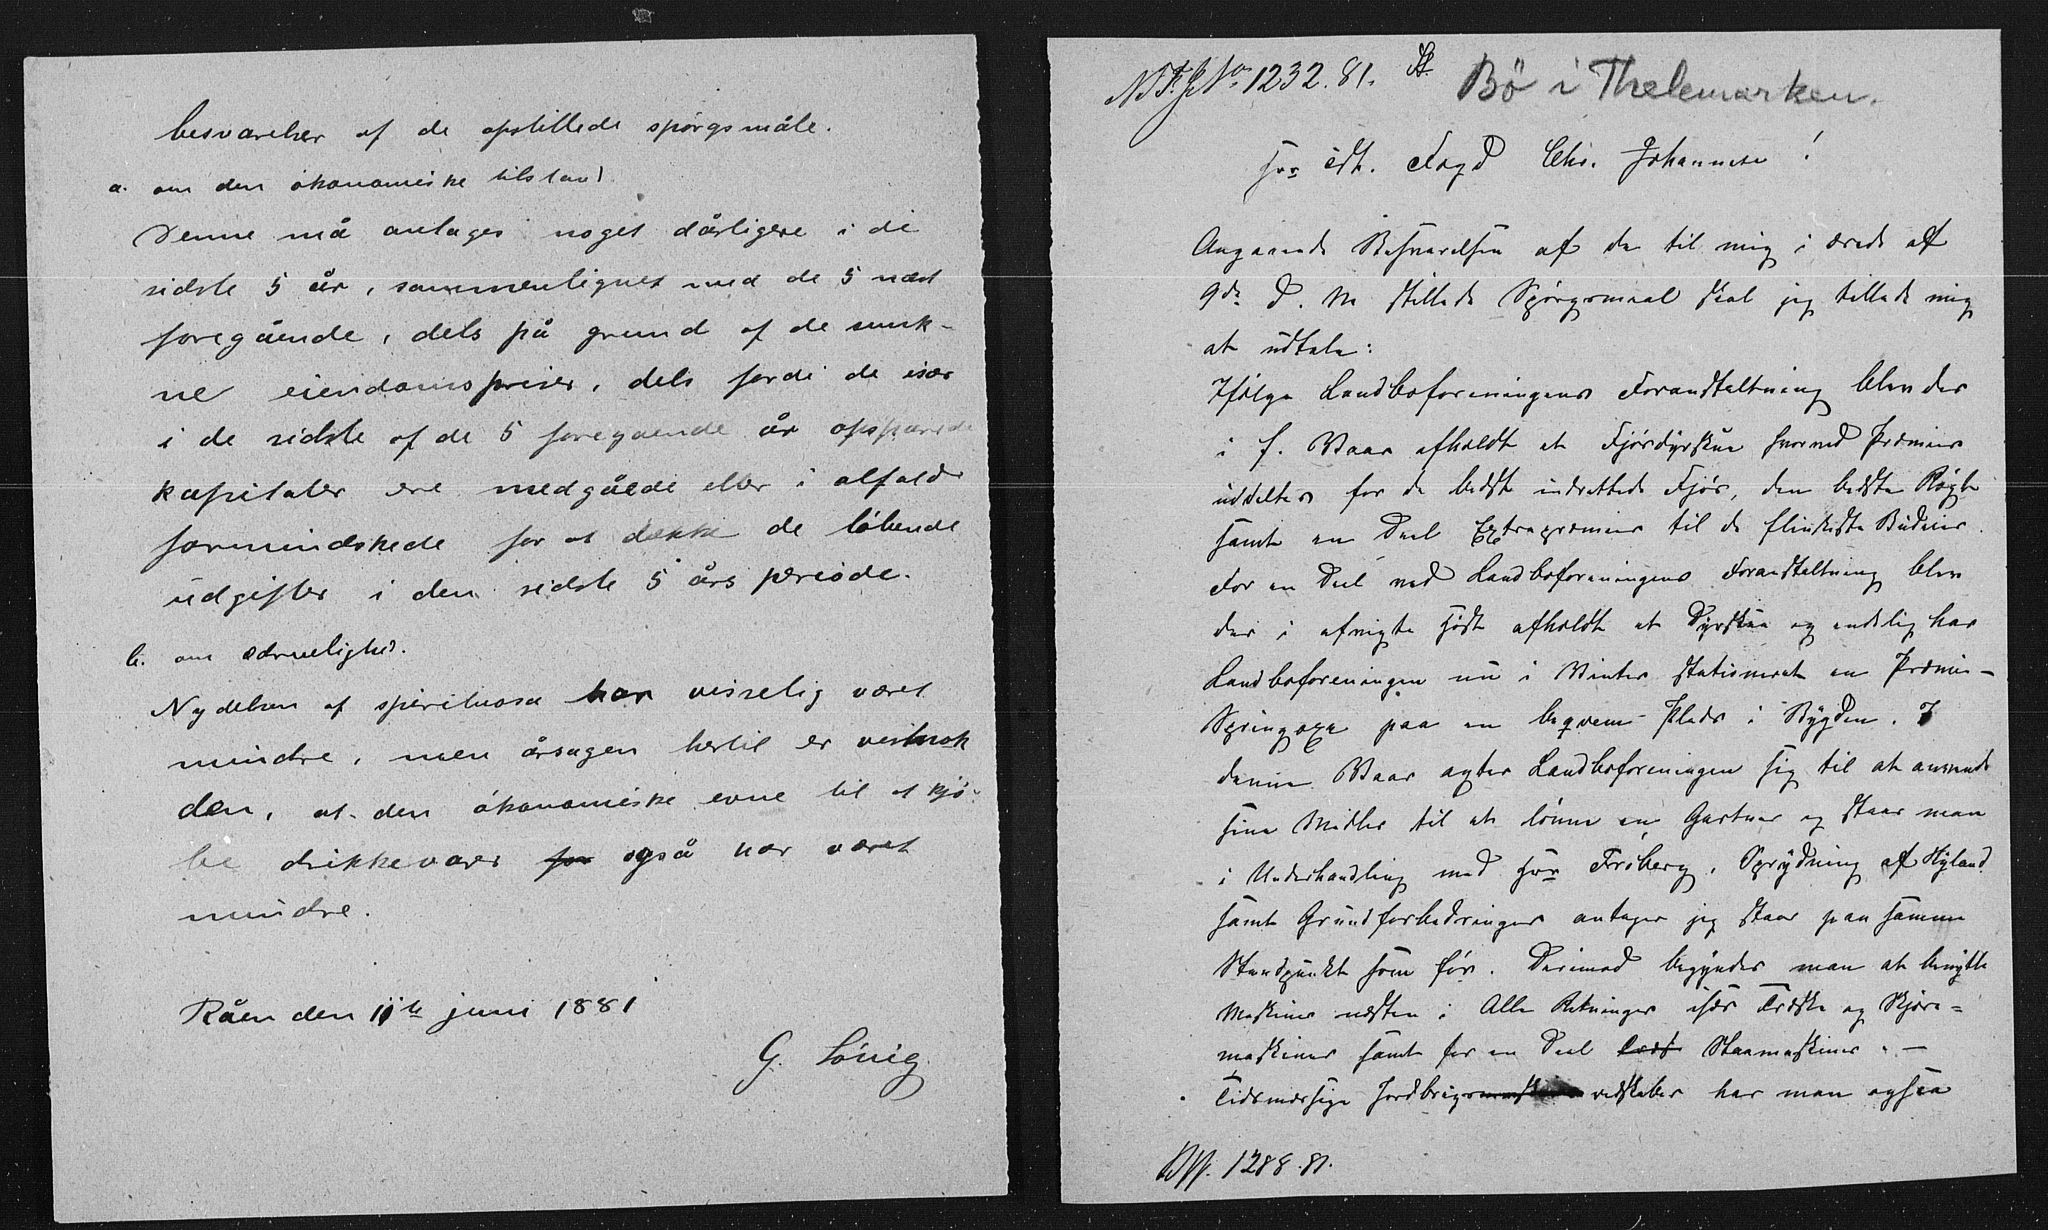 besvarelser af de opstillede spörgsmåle.
a. om den ökonomiske tilstand
Denne må antages noget dårligere i de
sidste 5 år, sammenlignet med de 5 næst
foregående, dels på grund af de sunk-
ne eiendomspriser, dels fordi de især
i de sidste af de 5 foregaende år opsparede
kapitaler ere medgåede eller i alfald
formindskede for at dække de löbende
udgifter i den sidste 5 års periode.
b. om ædruelighed.
Nydelsen af spirituosa har visselig været
mindre, men årsagen hertil er vistnok
den, at den ökonomiske evne til at kjö-
be drikkevarer for også har været
mindre.
Råen den 11te juni 1881
G. Lönig.
No 1232.81. Bö i Thelemarken.
Hrr Cst. Fogd Chr. Johannesen!
Angaaende Besvarelsen af de til mig i ærede af
9de d. M stillede Spörgsmaal skal jeg tillade mig
at udtale:
Ifölge Landboforeningens Foranstaltning blev der
i f. Vaar afholdt et Fjösdyrskue hvorved Præmier
uddeltes for de bedst indrettede Fjös, den bedste Rögt
samt en Deel Extrapræmier til de flinkeste Budeier.
For en Deel ved Landboforeningens Foranstaltning blev
der i afvigte Höst afholdt et Dyrskue og endelig har
Landboforeningen nu i Vinter stationeret en Præmie-
Springoxe paa en beqvem Plads i Bygden. I
denne Vaar agter Landboforeningen sig til at anvende
sine Midler til at lönne en Gartner og staar man
i Underhandling med Hrr Fröberg. Oprydning af Nyland
samt Grundforbedringer antager jeg staar paa samme
Standpunkt som för. Derimod begynder man at benytte
Maskiner næsten i Alle Retninger især Træske og Skjære-
maskiner samt for en Deel Slaamaskiner. —
Tidsmæssige Jordbrugs redskaber har man ogsaa
1288.81.